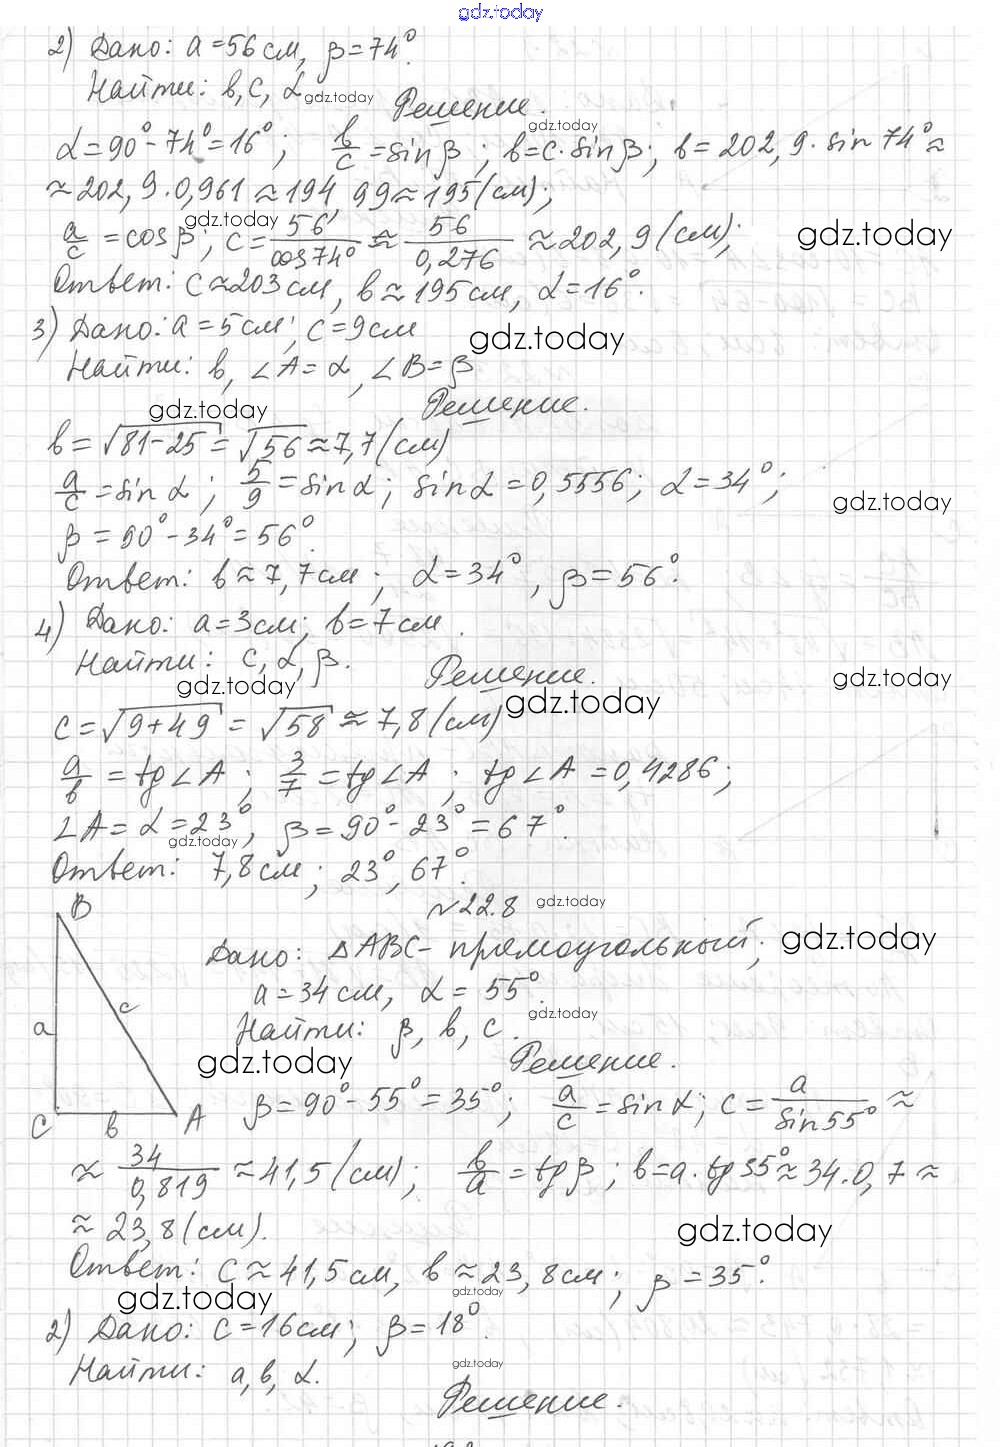 gdz.today
2) Дано: a=56см, β=74°.
Найти: b, c, α gdz.today
Решение.
gdz.today
α=90°-74°=16°; b/c=sinβ; b=c·sinβ; b=202,9·sin74°≈
≈202,9·0,961≈194,99≈195(см);
gdz.today
a/c=cosβ; c=56/cos74°≈56/0,276≈202,9(см); gdz.today
Ответ: c≈203см, b≈195см, α=16°.
3) Дано: a=5см; c=9см gdz.today
Найти: b, ∠A=α, ∠B=β
gdz.today Решение.
b=√81-25=√56≈7,7(см)
a/c=sinα; 5/9=sinα; sinα=0,5556; α=34°; gdz.today
β=90°-34°=56°.
Ответ: b≈7,7см; α=34°, β=56°.
4) Дано: a=3см; b=7см.
Найти: c, α, β.
gdz.today Решение. gdz.today
c=√9+49=√58≈7,8(см) gdz.today
a/b=tg∠A; 3/7=tg∠A; tg∠A=0,4286;
∠A=α=23°, β=90°-23°=67°.
gdz.today
Ответ: 7,8см; 23°, 67°.
№22.8 gdz.today
B
Дано: △ABC- прямоугольный; gdz.today
a=34см, α=55°.
a c
Найти: β, b, c. gdz.today
gdz.today Решение.
C b A
β=90°-55°=35°; a/c=sinα; c=a/sin55°≈
≈34/0,819≈41,5(см); b/a=tgβ; b=a·tg35°≈34·0,7≈
≈23,8(см). gdz.today
Ответ: c≈41,5см, b≈23,8см; β=35°.
gdz.today gdz.today
2) Дано: c=16см; β=18°.
Найти: a, b, α. gdz.today
Решение.